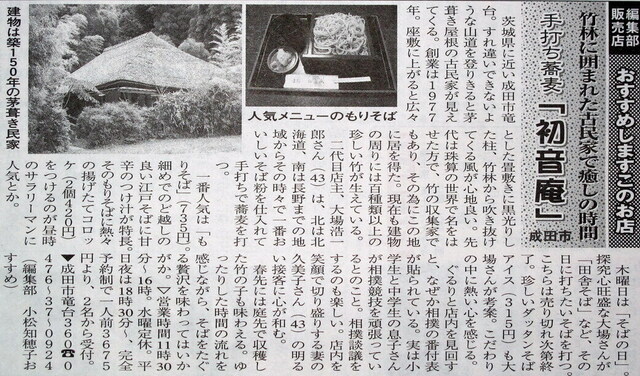 編集部
販売店
おすすめします このお店
竹林に囲まれた古民家で癒しの時間
手打ち蕎麦「初音庵」成田市
人気メニューのもりそば
建物は築150年の茅葺き民家
　茨城県に近い成田市竜
台。すれ違いできないよ
うな山道を登りきると茅
葺き屋根の古民家が見え
てくる。創業は1977
年。座敷に上がると広々
とした畳敷きに黒光りし
た柱、竹林から吹き抜け
てくる風が心地良い。先
代は珠算の世界で名をは
せた方で、竹の収集家で
もあり、その為にこの地
に居を得た。現在も建物
の周りには百種類以上の
珍しい竹が生えている。
　二代目店主、大場浩一
郎さん(43)は、北は北
海道、南は長野までの地
域からその時々で一番お
いしいそば粉を仕入れて
手打ちで蕎麦を打
つ。
　一番人気は、「も
りそば」(735円)。
細めでのど越しの
良い江戸そばに甘
辛のつけ汁が特長。
そのもりそばに熱々
の揚げたてコロッ
ケ(2個420円)
をつけるのが昼時
のサラリーマンに
人気とか。
　木曜日は「そばの日」。
探究心旺盛な大場さんが
「田舎そば」など、その
日に打ちたいそばを打つ。
こちらは売り切れ次第終
了。珍しいダッタンそば
アイス(315円)も大
場さんが考案。こだわり
の中に熱い心を感じる。
　ぐるりと店内を見回す
と、なぜか相撲の番付表
が貼られている。実は小
学生と中学生の息子さん
が相撲競技を頑張ってい
るとのこと。相撲談議を
するのも楽しい。店内を
笑顔で切り盛りする妻の
久美子さん(43)の明る
い接客に心が和む。
　春先には庭先で収穫し
た竹の子も味わえる。ゆ
ったりした時間の流れを
感じながら、そばをたぐ
る贅沢を味わってはいか
がか。▽営業時間11時30
分〜16時。水曜定休。平
日夜は18時30分〜、完全
予約制で一人前3675
円より、2名から受付。
▼成田市竜台660☎0
476-37-0924
(編集部　小松知穂子お
すすめ)